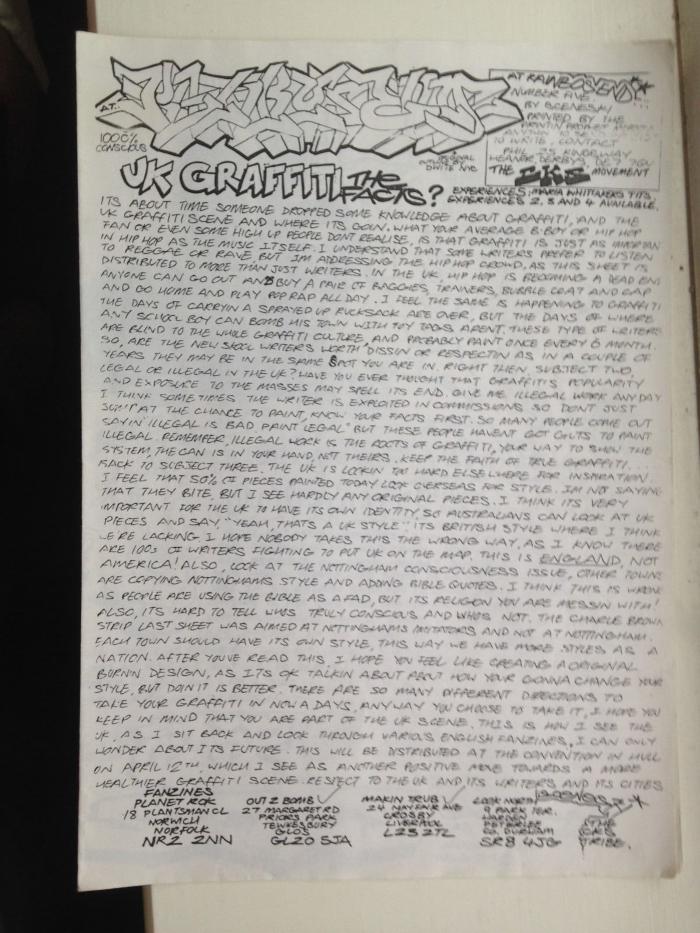 AT...
100% CONSCIOUS
AT RAINBOWS END
NUMBER FIVE
BY BOENESKI
PRINTED BY THE
TO WRITE, CONTACT
HEANOR, DERBYS, DE7 7DU
THE MOVEMENT
UK GRAFFITI THE FACTS?
EXPERIENCES; MARIA WHITTAKERS TITS,
EXPERIENCES 2, 3 AND 4 AVAILABLE.
ITS ABOUT TIME SOMEONE DROPPED SOME KNOWLEDGE ABOUT GRAFFITI, AND THE
UK GRAFFITI SCENE AND WHERE ITS GOIN. WHAT YOUR AVERAGE B-BOY OR HIP HOP
FAN OR EVEN SOME HIGH UP PEOPLE DONT REALISE, IS THAT GRAFFITI IS JUST AS IMPORTAN
IN HIP HOP AS THE MUSIC ITSELF. I UNDERSTAND THAT SOME WRITERS PREFER TO LISTEN
TO REGGAE OR RAVE, BUT IM ADDRESSING THE HIP HOP CROWD, AS THIS SHEET IS
DISTRIBUTED TO MORE THAN JUST WRITERS. IN THE UK, HIP HOP IS BECOMING A DEAD END
ANYONE CAN GO OUT AND BUY A PAIR OF BAGGIES, TRAINERS, BUBBLE COAT AND CAP
AND GO HOME AND PLAY POP RAP ALL DAY. I FEEL THE SAME IS HAPPENING TO GRAFFITI
THE DAYS OF CARRYIN A SPRAYED UP RUCKSACK ARE OVER, BUT THE DAYS OF WHERE
ANY SCHOOL BOY CAN BOMB HIS TOWN WITH TOY TAGS ARENT. THESE TYPE OF WRITERS
ARE BLIND TO THE WHOLE GRAFFITI CULTURE, AND PROBABLY PAINT ONCE EVERY 6 MONTH.
SO, ARE THE NEW SKOOL WRITERS WORTH DISSIN OR RESPECTIN AS IN A COUPLE OF
YEARS THEY MAY BE IN THE SAME SPOT YOU ARE IN. RIGHT THEN, SUBJECT TWO,
LEGAL OR ILLEGAL IN THE UK? HAVE YOU EVER THOUGHT THAT GRAFFITI'S POPULARITY
AND EXPOSURE TO THE MASSES MAY SPELL ITS END. GIVE ME ILLEGAL WORK ANY DAY
I THINK SOMETIMES THE WRITER IS EXPLOITED IN COMMISSIONS SO DONT JUST
JUMP AT THE CHANCE TO PAINT, KNOW YOUR FACTS FIRST. SO MANY PEOPLE COME OUT
SAYIN "ILLEGAL IS BAD, PAINT LEGAL" BUT THESE PEOPLE HAVENT GOT GUTS TO PAINT
ILLEGAL. REMEMBER, ILLEGAL WORK IS THE ROOTS OF GRAFFITI, YOUR WAY TO SHOW THE
SYSTEM, THE CAN IS IN YOUR HAND, NOT THEIRS. KEEP THE FAITH OF TRUE GRAFFITI...
BACK TO SUBJECT THREE. THE UK IS LOOKIN TOO HARD ELSEWHERE FOR INSPIRATION.
I FEEL THAT 50% OF PIECES PAINTED TODAY LOOK OVERSEAS FOR STYLE. IM NOT SAYING
THAT THEY BITE, BUT I SEE HARDLY ANY ORIGINAL PIECES. I THINK ITS VERY
IMPORTANT FOR THE UK TO HAVE ITS OWN IDENTITY, SO AUSTRALIANS CAN LOOK AT UK
PIECES AND SAY, "YEAH, THATS A UK STYLE". ITS BRITISH STYLE WHERE I THINK
WERE LACKING. I HOPE NOBODY TAKES THIS THE WRONG WAY, AS I KNOW THERE
ARE 100s OF WRITERS FIGHTING TO PUT UK ON THE MAP, THIS IS ENGLAND, NOT
AMERICA! ALSO, LOOK AT THE NOTTINGHAM CONSCIOUSNESS ISSUE, OTHER TOWNS
ARE COPYING NOTTINGHAMS STYLE AND ADDING BIBLE QUOTES. I THINK THIS IS WRONG
AS PEOPLE ARE USING THE BIBLE AS A FAD, BUT ITS RELIGION YOU ARE MESSIN WITH!
ALSO, ITS HARD TO TELL WHOS TRULY CONSCIOUS AND WHOS NOT. THE CHARLIE BROWN
STRIP LAST SHEET WAS AIMED AT NOTTINGHAMS IMITATORS AND NOT AT NOTTINGHAM.
EACH TOWN SHOULD HAVE ITS OWN STYLE, THIS WAY WE HAVE MORE STYLES AS A
NATION. AFTER YOUVE READ THIS, I HOPE YOU FEEL LIKE CREATING A ORIGINAL
BURNIN DESIGN, AS ITS OK TALKIN ABOUT ABOUT HOW YOUR GONNA CHANGE YOUR
STYLE, BUT DOIN IT IS BETTER. THERE ARE SO MANY DIFFERENT DIRECTIONS TO
TAKE YOUR GRAFFITI IN NOW A DAYS, ANYWAY YOU CHOOSE TO TAKE IT, I HOPE YOU
KEEP IN MIND THAT YOU ARE PART OF THE UK SCENE. THIS IS HOW I SEE THE
UK, AS I SIT BACK AND LOOK THROUGH VARIOUS ENGLISH FANZINES, I CAN ONLY
WONDER ABOUT ITS FUTURE. THIS WILL BE DISTRIBUTED AT THE CONVENTION IN HULL
ON APRIL 12TH, WHICH I SEE AS ANOTHER POSITIVE MOVE TOWARDS A MORE
HEALTHIER GRAFFITI SCENE. RESPECT TO THE UK AND ITS WRITERS AND ITS CITIES
FANZINES
PLANET ROK
18 PLANTSMAN CL
NORWICH
NORFOLK
NR2 2NN
OUT 2 BOMB
27 MARGARET RD
PRIORS PARK
TEWKESBURY
GLOS
GL20 5JA
MAKIN TRUB
24 MAYFAIR AVE
CROSBY
LIVERPOOL
L23 2TL
LOOK NORTH
9 PARK TER.
HARDEN
PETERLEE
CO. DURHAM
SR8 4JG
THE
TRIBE.